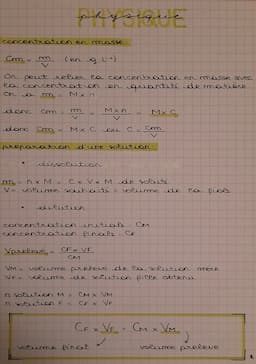 PHYSIQUE
physique
concentration en masse
Cm = m/V (en g.L⁻¹)
On peut relier la concentration en masse avec
la concentration en quantité de matière
On a m = M x n
donc Cm = m/V = M x n/V = M x C
donc Cm = M x C ou C = Cm/M
préparation d'une solution
• dissolution
m = n x M = C x V x M de soluté
V = volume souhaité = volume de la fiole
• dilution
concentration initiale CM
concentration finale CF
Vprélevé = CF x VF/CM
VM = volume prélevé de la solution mère
VF = volume de solution fille obtenu
n solution M = CM x VM
n solution F = CF x VF
CF x VF = CM x VM
volume final volume prélevé